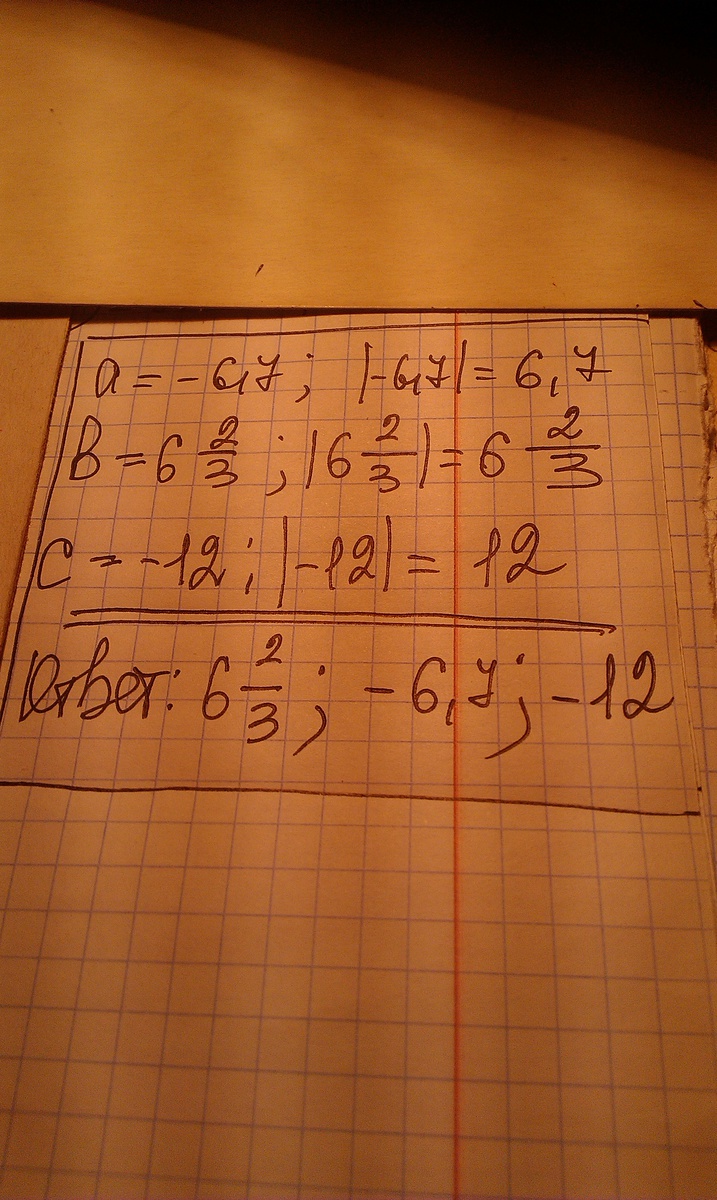 a = -6,7; |-6,7| = 6,7
B = 6 2/3; |6 2/3| = 6 2/3
C = -12; |-12| = 12
Ответ: 6 2/3; -6,7; -12